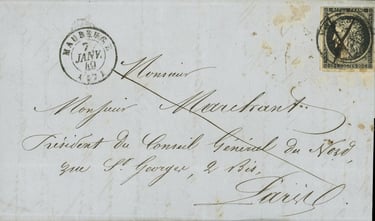 MAUBEUGE
7
JANV.
49
(57)
REPUB. FRANC.
Monsieur
Monsieur Marchant
Président du Conseil Général du Nord,
rue St Georges, 2 Bis,
Paris